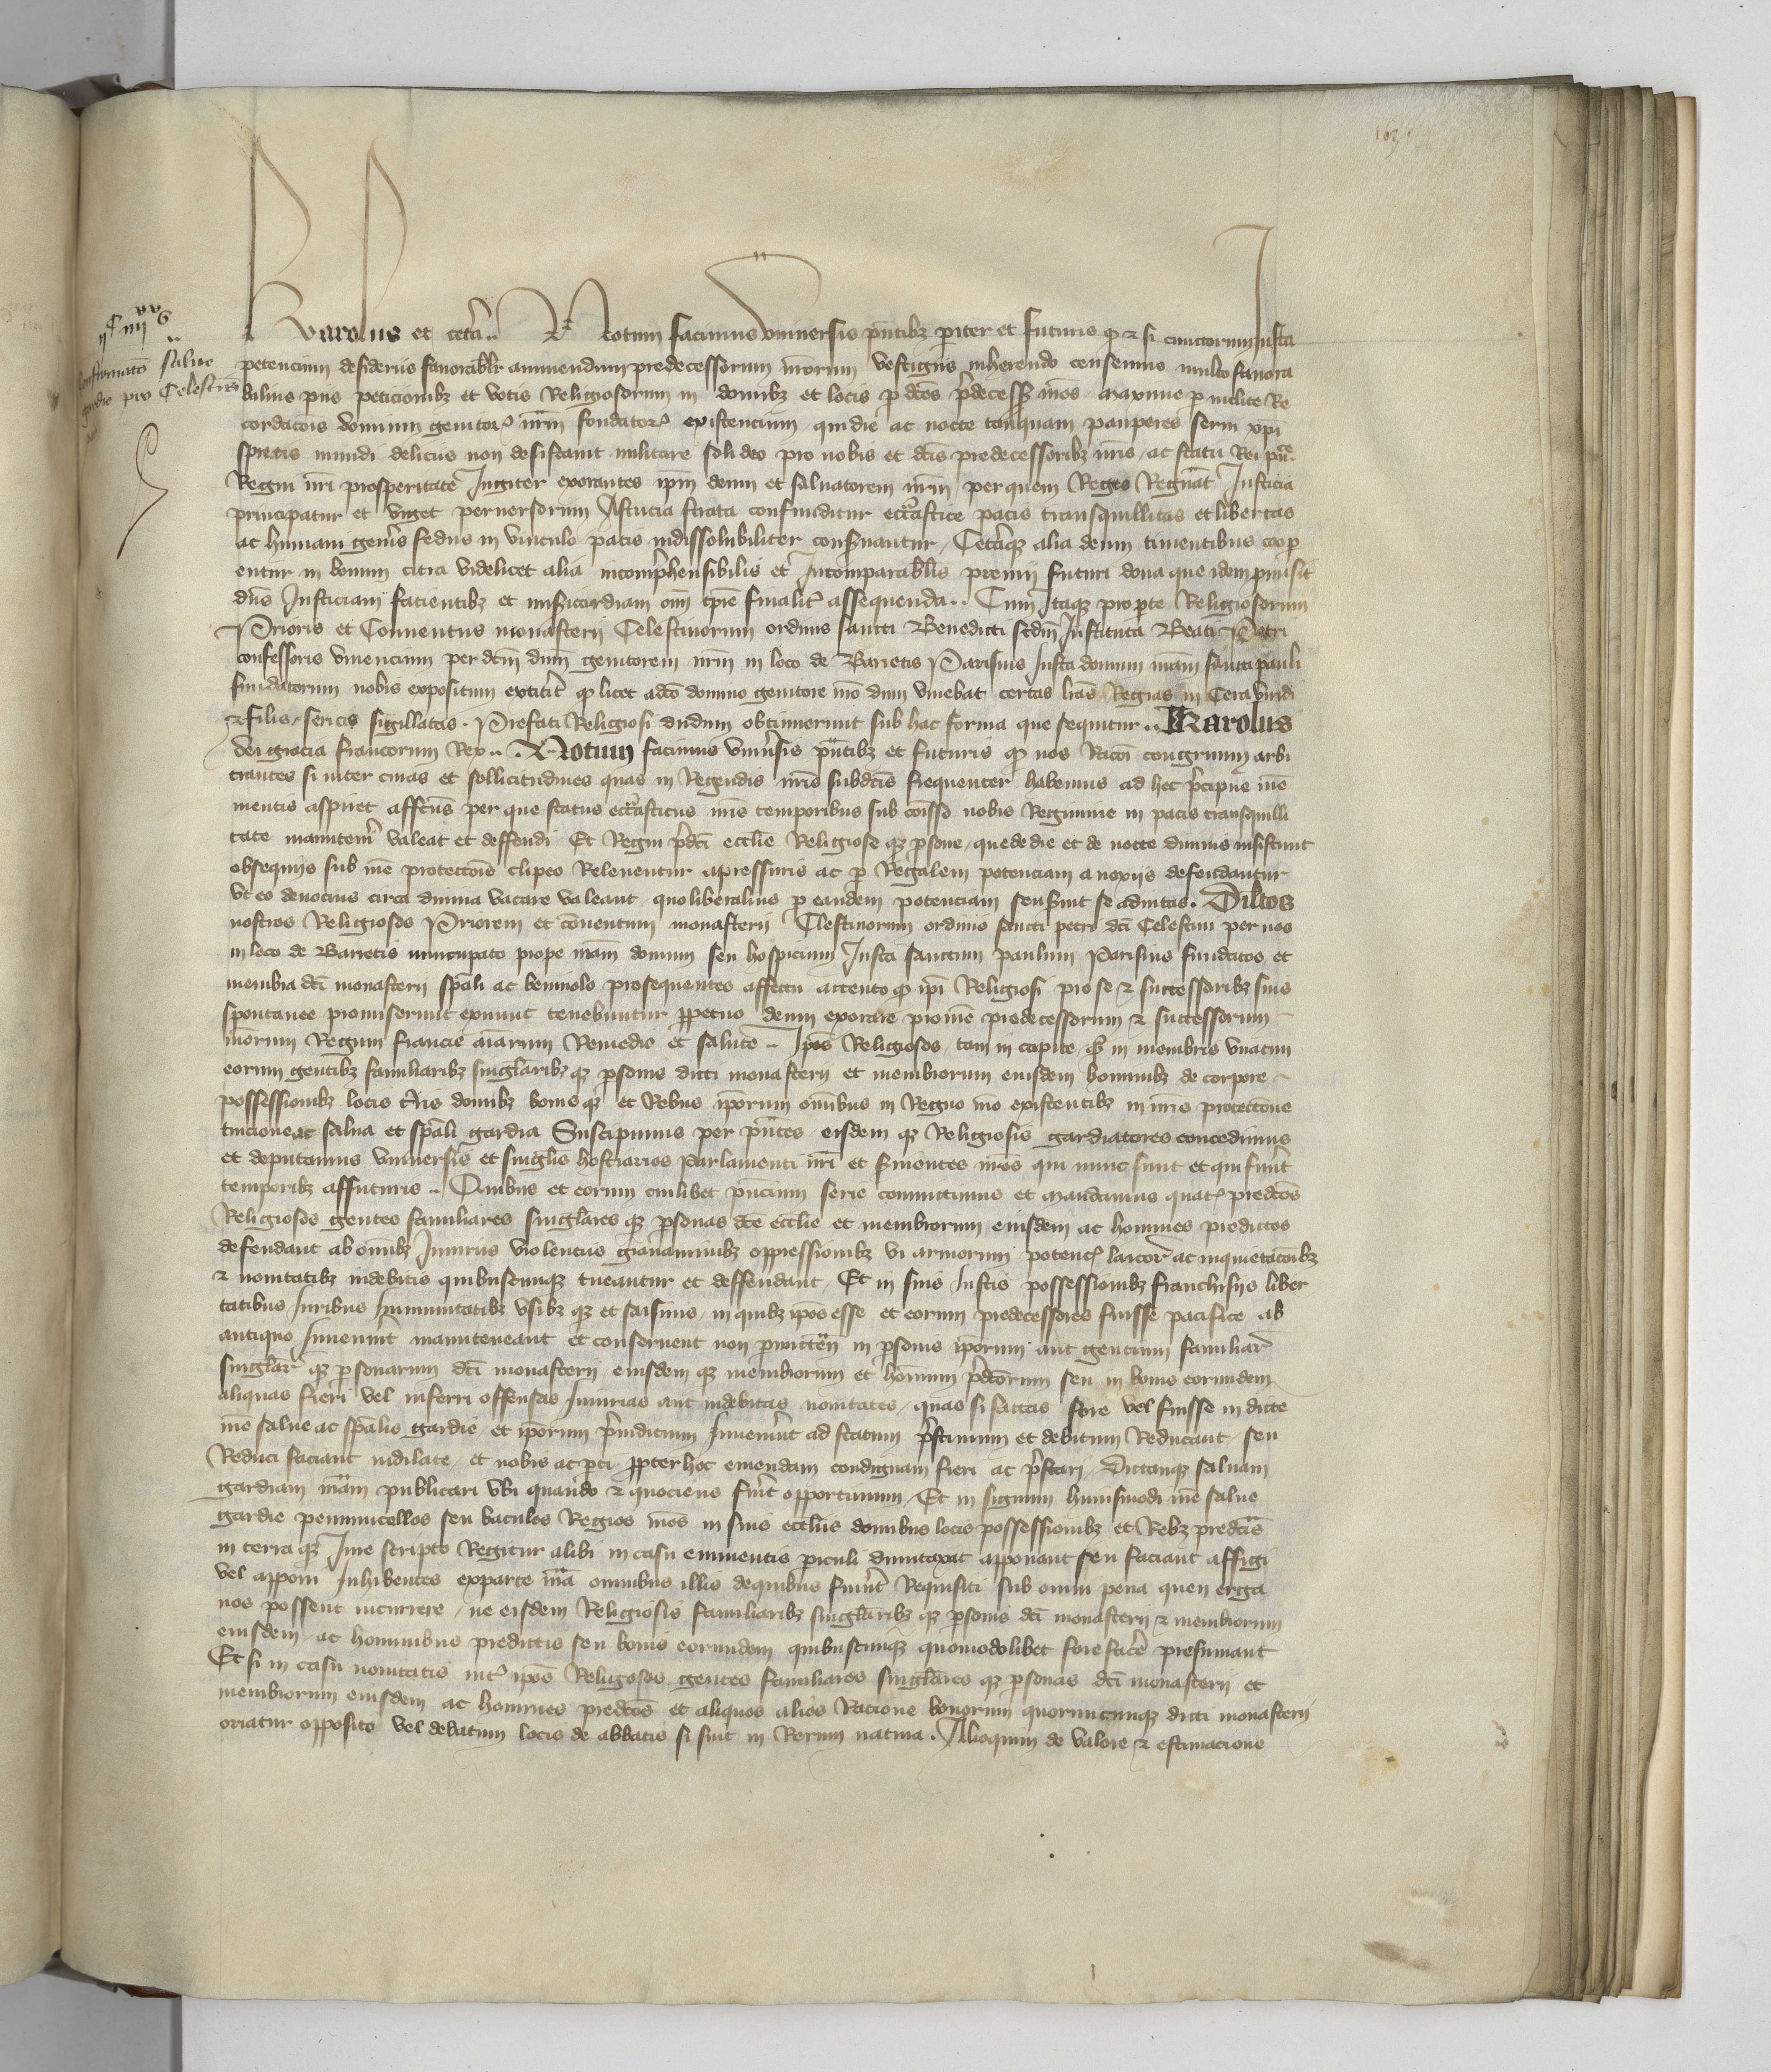 163
iiᶜ iiijˣˣ vj
Confirmatō salue
gardie pro Celestinis
Karolus et cetā .. Notum facimus vniuersis pn̄tibꝫ pīter et futuris ꝙ ⁊ si cunctorum iusta
petencium desideriis fauorabilr̄ annuendum predecessorum nr̄orum vestigiis inherendo censemus multo fauora
bilius piis peticionibꝫ et votis Religiosorum in domibꝫ et locis ꝑ dc̄os p̄decess nr̄os maxime ꝑ inclite Re
cordacōis dominum genitorꝭ nr̄m fondatorꝭ existencium qui die ac nocte tanquam pauperes serui xp̄i
spretis mundi deliciis non desistunt militare soli deo pro nobis et dc̄is predecessoribꝫ nr̄is ac statu Rei pu̅ce
Regni nr̄i prosperitate Jugiter exorantes ip̄m deum et saluatorem nr̄m per quem Reges Regnāt Justicia
principatur et viget peruersorum Astucia strata confunditur eccl̄iastice pacis transquillitas et libertas
ac humani gen̄is fedus in vinculo pacis indissolubiliter conseruantur / Cetāqꝫ alia deum timentibus coop
entur in bonum citra videlicet alia incomp̄hensibilis et Incomparabl̄is premij futuri dona que idem ꝓmisit
dn̄s Justiciam facientibꝫ et mis̄icordiam om̄i tp̄re finalit̄ assequenda .. Cum Itaqꝫ pro ꝑte Religiosorum
Prioris et Conuentus monasterij Celestinorum ordinis sancti Benedicti scd̄m Instituta Beati Petri
confessoris viuencium per dc̄m dn̄m genitorem nr̄m in loco de Barretis Parisius Iusta domum nr̄am sancti pauli
fundatorum nobis expositum extitit̄ ꝙ licet adc̄o domino genitore nr̄o dum viuebat certas lr̄as Regias in Cera viridi
⁊ filis sericis sigillatas . Prefati Religiosi dudum obtinuerunt sub hac forma que sequitur .. Karolus
dei gracia francorum Rex .. Notum facimus vniu̅sis pn̄tibꝫ et futuris ꝙ nos Rac̄oi congruum arbi
trantes si inter curas et sollicitudines quas in Regendis nr̄is subdc̄is frequenter habemus ad hec p̄cipue nr̄e
mentis aspiret affc̄us per que status eccl̄iasticus nr̄is temporibus sub com̄isso nobis Regimine in pacis transquilli
tate manuten̄i valeat et deffendi Et Regni p̄dc̄i eccl̄ie Religiose qꝫ ꝑsone / que de die et de nocte diuinis insistunt
obsequiis sub nr̄e protectōnis clipeo Releuentur apressuris ac ꝑ Regalem potenciam a noxijs defendantur
vt eo deuocius circa diuina vacare valeant quo liberalius ꝑ eandem potenciam senserint se adiutas . Dilc̄os
nostros Religiosos Priorem et cōuentum monasterij Clestinorum ordinis sancti petri dc̄i Celestini per nos
in loco de Barretis nuncupato prope nr̄am domum seu hospicium Iusta sanctum paulum Parisius fundatos et
membra dc̄i monasterij spāli ac beniuolo prosequentes affectu attento ꝙ ip̄i Religiosi pro se ⁊ successoribꝫ suis
spontanee promiserunt exnunc tenebuntur ꝑpetuo deum exorare pro nr̄e predecessorum ⁊ successorum
nr̄orum Regum francie aīarum Remedio et salute .. Ip̄os Religiosos tam in capite ꝙ̄ in membris vnacum
eorum gentibꝫ familiaribꝫ singl̄aribꝫ qꝫ ꝑsonis dicti monasterij et membrorum eiusdem hominibꝫ de corpore
possessionibꝫ locis t̄ris domibꝫ bonis qꝫ et Rebus ip̄orum om̄ibus in Regno nr̄o existentibꝫ in nr̄is protectōne
tuicione ac salua et spāli gardia Suscipimus per pn̄tes eisdem qꝫ Religiosis gardiatores concedimus
et deputamus vniuersis et singl̄is hostiarios Parlamenti nr̄i et s̄uientes nr̄os qui nunc sunt et qui fuer̄t
temporibꝫ affuturis .. Quibus et eorum cuilibet pn̄cium serie committimus et mandamus quatꝭ predc̄os
Religiosos gentes familiares singl̄ares qꝫ ꝑsonas dc̄e eccl̄ie et membrorum eiusdem ac homines predictos
defendant ab om̄ibꝫ Iniuriis violentiis grauaminibꝫ oppressionibꝫ vi armorum potencꝭ laicorꝭ ac inquietacōibꝫ
⁊ nouitatibꝫ indebitis quibuscunqꝫ tueantur et deffendant / Et in suis iustis possessionibꝫ franchisijs liber
tatibus iuribus Immunitatibꝫ vsibꝫ qꝫ et saisinis in quibꝫ ip̄os esse et eorum predecessores fuisse pacifice ab
antiquo Inuenerint manuteneant et conseruent non ꝑmitten̄ in ꝑsonis ip̄orum aut gencium familiar̄
singlar̄ qꝫ ꝑsonarum dc̄i monasterij eiusdem qꝫ membrorum et hōinum p̄dc̄orum seu in bonis eorumdem
aliquas fieri vel inferri offensas Iniurias aut indebitas nouitates / quas si factas fore vel fuisse in dicte
nr̄e salue ac spālis gardie et ip̄orum p̄iudicium Inuen̄int ad statum p̄stinum et debitum Reducant seu
Reduci faciant indilate / et nobis ac ꝑti ꝓpter hoc emendam condignam fieri ac p̄stari / Dictamqꝫ saluam
gardiam nr̄am publicari vbi quando ⁊ quociens fuer̄it opportunum / Et in signum huiusmodi nr̄e salue
gardie pennuncellos seu baculos Regios nr̄os in suis eccl̄iis domibus locis possessionibꝫ et Rebꝫ predc̄is
in terra qꝫ Jure scripto Regitur alibi in casu eminentis ꝑiculi dumtaxat apponant seu faciant affigi
vel apponi Inhibentes exparte nr̄a omnibus illis de quibus fuerint Requisiti sub omni pena quen erga
nos possent incurrere / ne eisdem Religiosis familiaribꝫ singl̄aribꝫ qꝫ ꝑsonis dc̄i monasterij ⁊ membrorum
eiusdem ac hominibus predictis seu bonis eorumdem quibuscunqꝫ quomodolibet fore fac̄e presumant
Et si in casu nouitatis intꝭ ip̄os Religosos gentes familiares singl̄ares qꝫ ꝑsonas dc̄i monasterij et
membrorum eiusdem ac homines predc̄os et aliquos alios Racione bonorum quorumcunqꝫ dicti monasterij
oriatur opposito vel debatum locis de abbatis si sint in Rerum natura . Alioquim de valore ⁊ estimacione